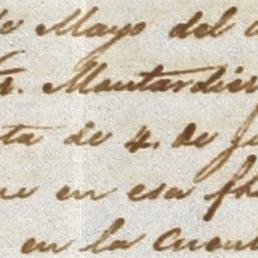 de Mayo del
Mantardie
ta de 4. de Ju
ue en esa fh
en la Cuent